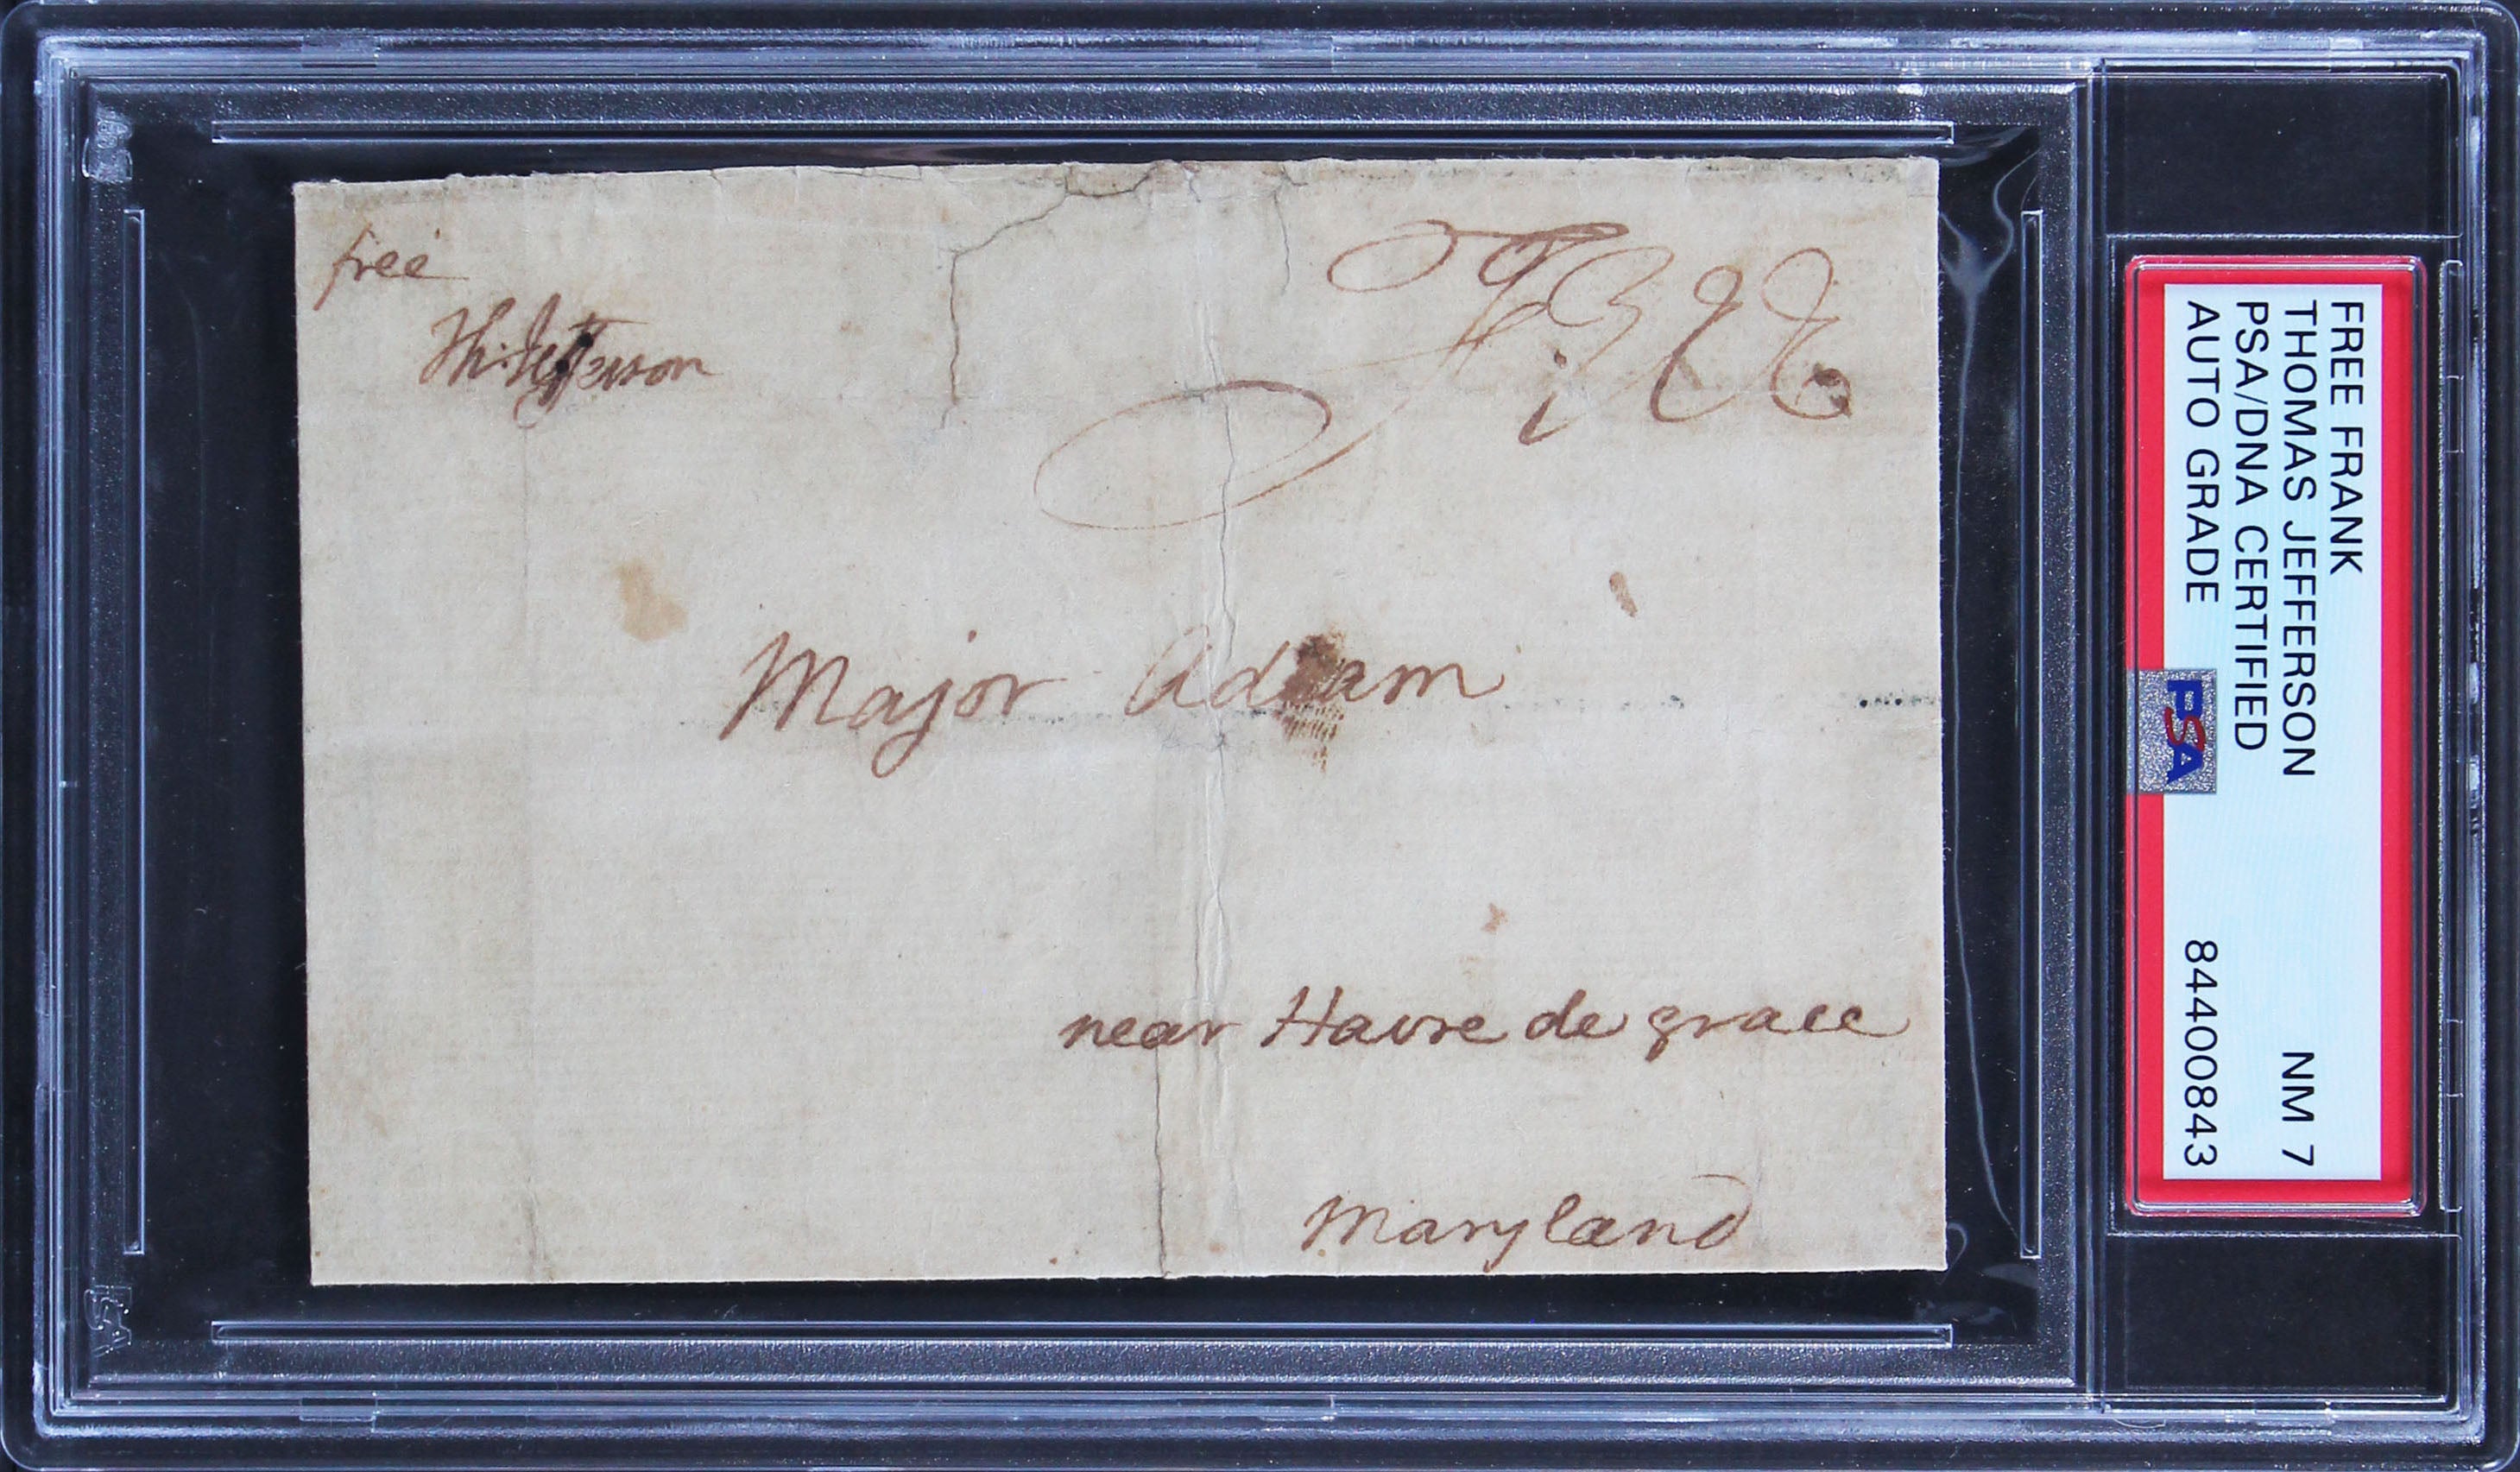 free
Th: Jefferson
FREE
Major Adlam
near Havre de grace
Maryland
FREE FRANK
THOMAS JEFFERSON NM 7
PSA/DNA CERTIFIED
AUTO GRADE 84400843
PSA